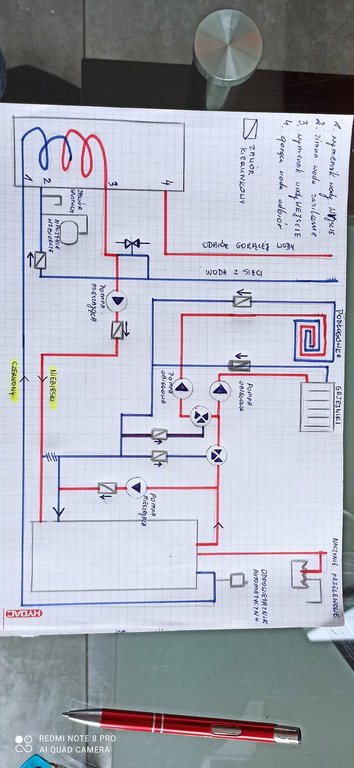 1. WYMIENNIK WODY WYJŚCIE
2. ZIMNA WODA ZASILANIE
3. WYMIENNIK WODY WEJŚCIE
4. GORĄCA WODA ODBIÓR
ZAWÓR
KIERUNKOWY
1
2
3
4
ZAWÓR
NACZYNIE
WZBIORCZE
ODBIÓR GORĄCEJ WODY
WODA Z SIECI
POMPA
MIESZAJĄCA
PODŁOGÓWKA
GRZEJNIKI
POMPA
OBIEGOWA
POMPA
OBIEGOWA
CZERWONY
NIEBIESKI
POMPA
MIESZAJĄCA
NACZYNIE PRZELEWOWE
ODPOWIETRZNIK
AUTOMATYCZNY
HYDAC
REDMI NOTE 8 PRO
AI QUAD CAMERA